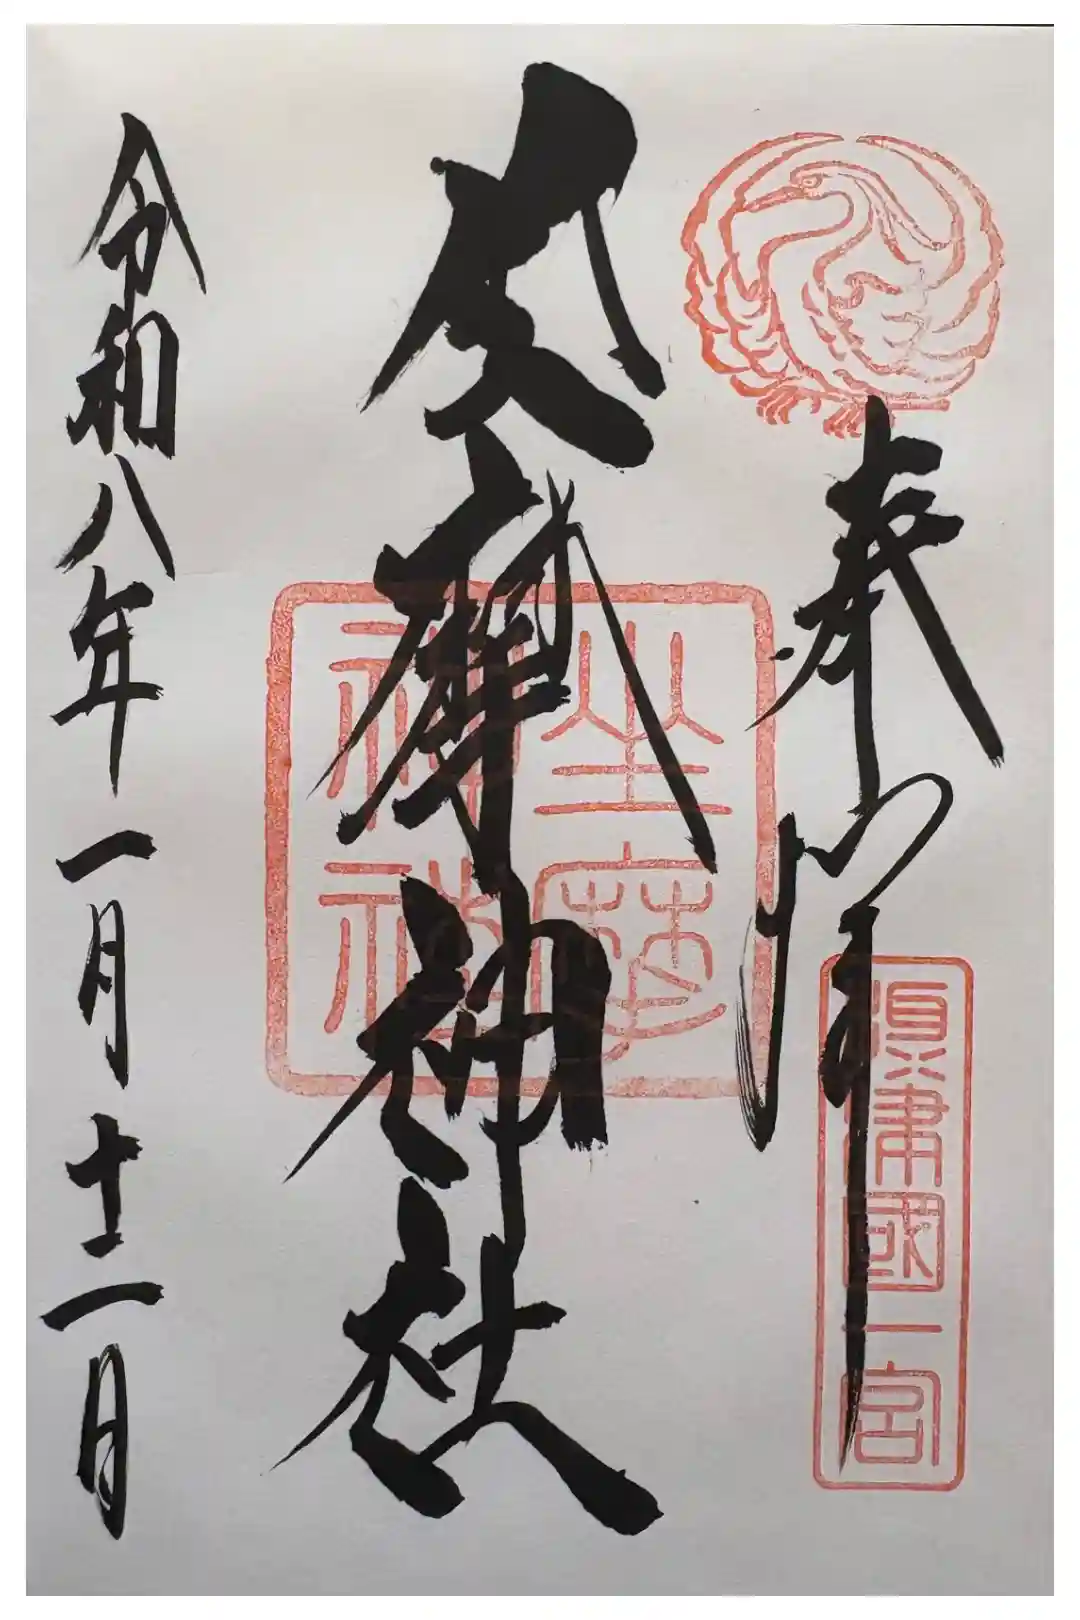 奉拝
津國一宮
坐摩神社
坐摩
神社
令和八年一月十一日